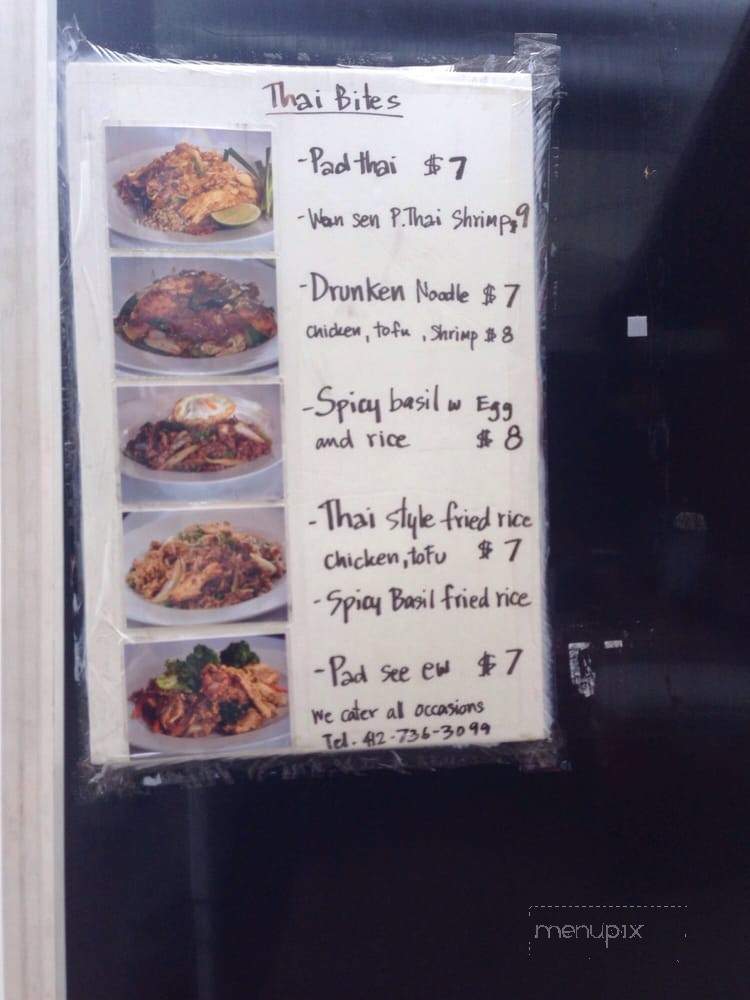 Thai Bites
-Pad thai $7
-Wan sen P.Thai Shrimp $9
-Drunken Noodle $7
chicken, tofu, Shrimp $8
-Spicy basil w Egg
and rice $8
-Thai style fried rice
chicken, tofu $7
-Spicy Basil fried rice
-Pad see ew $7
We cater all occasions
Tel. 412-736-3099
menupix